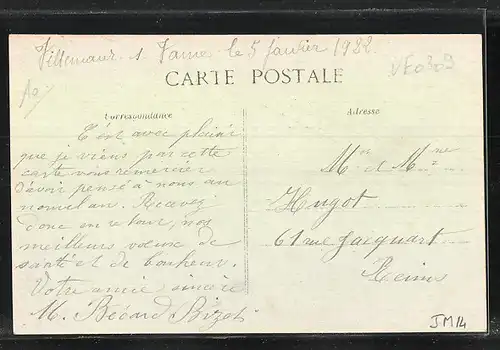 Villemaur s. Vanne le 5 janvier 1922
VF0303
CARTE POSTALE
Correspondance
Adresse
C'est avec plaisir
que je viens par cette
carte vous remercier
d'avoir pensé à nous au
nouvel an. Recevez
donc en retour, nos
meilleurs vœux de
santé et de bonheur.
Votre amie sincère
M. Bécard Bizet
Mr et Mme
Hugot
61 rue Jacquart
Reims
JM14